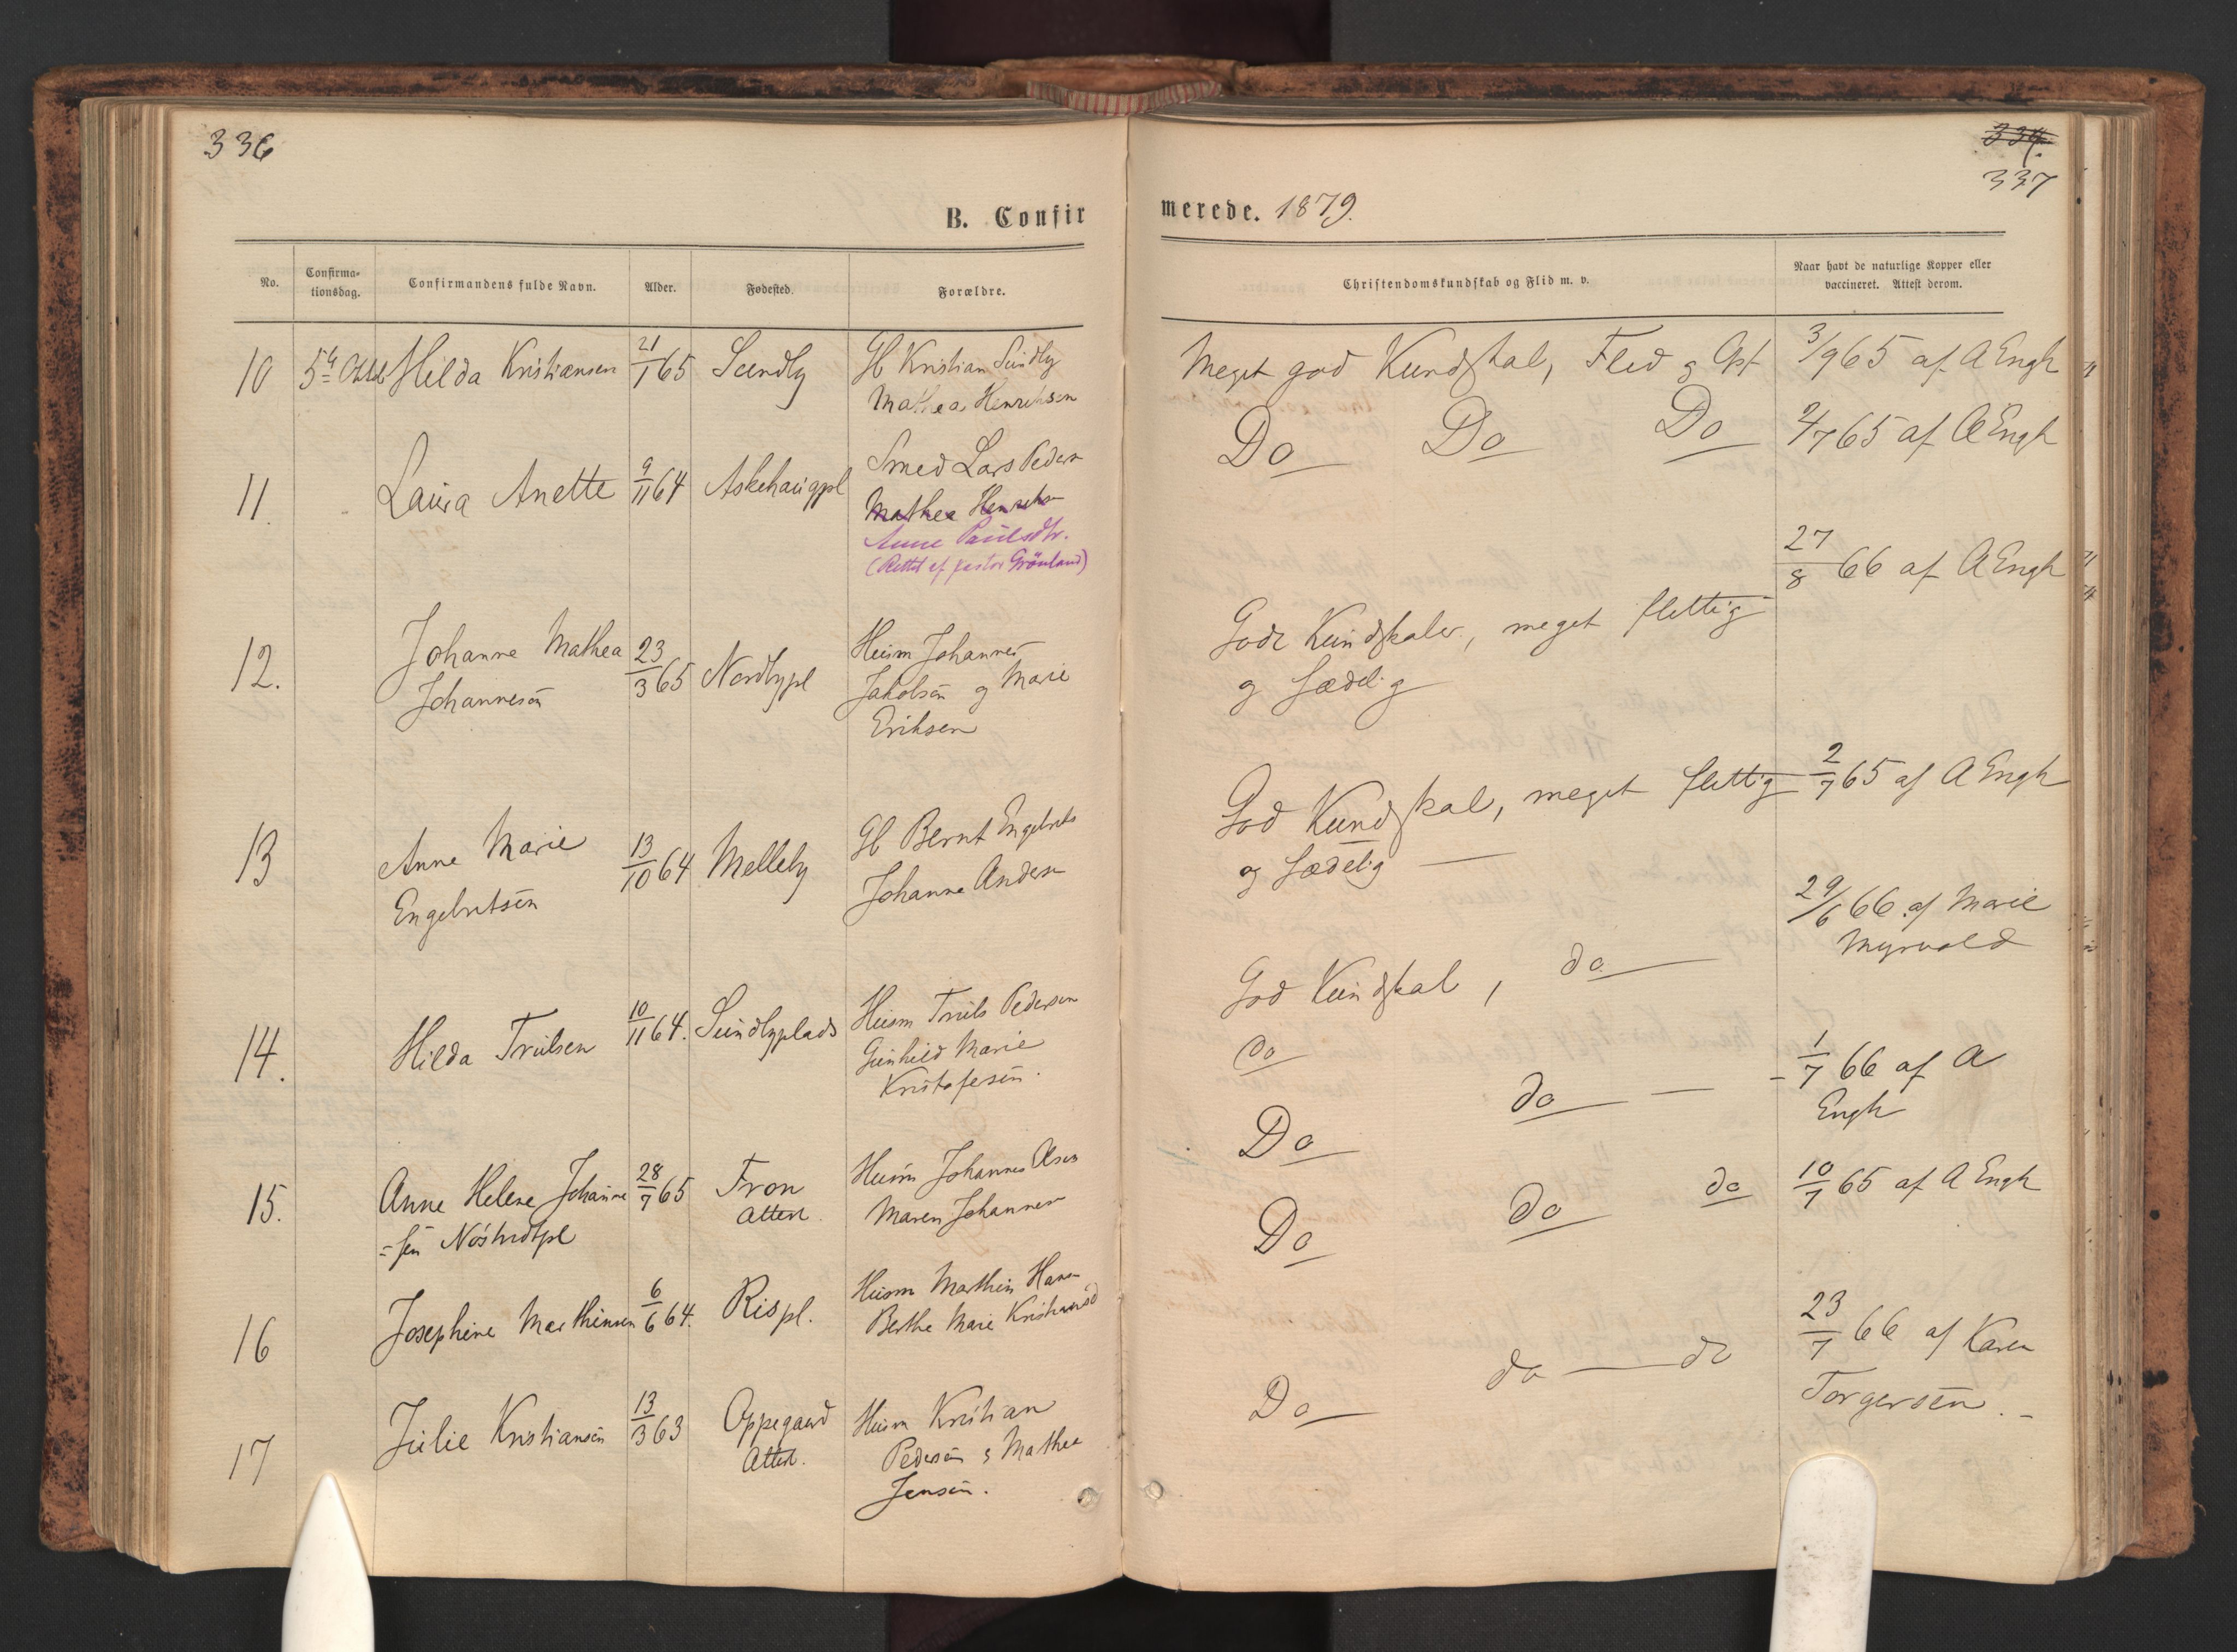 336
334.
337
B. Confir
merede. 1879.
No.
Confirma-
tionsdag.
Confirmandens fulde Navn.
Alder.
Fødested.
Forældre.
Christendomskundskab og Flid m. v.
Naar havt de naturlige Kopper eller
vaccineret. Attest derom.
10 5te Oktob Hilda Kristiansen 21/1 65 Sundby Gb Kristian Sundby
Mathea Henriksen
Meget god Kundskab, Flid og Opf 3/9 65 af A Engh
11. Laura Anette 9/11 64 Askehaugpl Smed Lars Peders
Mathea Henriks
Anne Paulsdtr.
(Rettet af pastor Grönland)
Do Do Do 2/7 65 af A Engh
12. Johanne Mathea 23/3 65 Nordbypl Husm Johannes
Johannesen Jakobsen og Marie
Eriksen
Gode Kundskaber, meget flittig 27/8 66 af A Engh
og sædelig
13 Anne Marie 13/10 64 Melleby Gb Bernt Engebrets
Engebretsen Johanne Anders
God Kundskab, meget flittig 2/7 65 af A Engh
og sædelig
14. Hilda Trulsen 10/11 64. Sundbyplads Husm Truls Pedersen
Gunhild Marie
Kristofersen.
God Kundskab, do 29/6 66 af Marie
do Myrvold
15. Anne Helene Johanne 28/7 65 Fron Husm Johannes Olsen
=sen Nöstvedtpl Attest. Maren Johannes
Do do 1/7 66 af A
Engh
16 Josephine Marthinsen 6/6 64. Rispl. Husm Marthin Hansen
Berthe Marie Kristiansd
Do do do 10/7 65 af A Engh
17 Julie Kristiansen 13/3 63 Oppegaard Husm Kristian
Attest. Pedersen & Mathea
Jensen.
Do do do 23/7 66 af Karen
Torgersen.